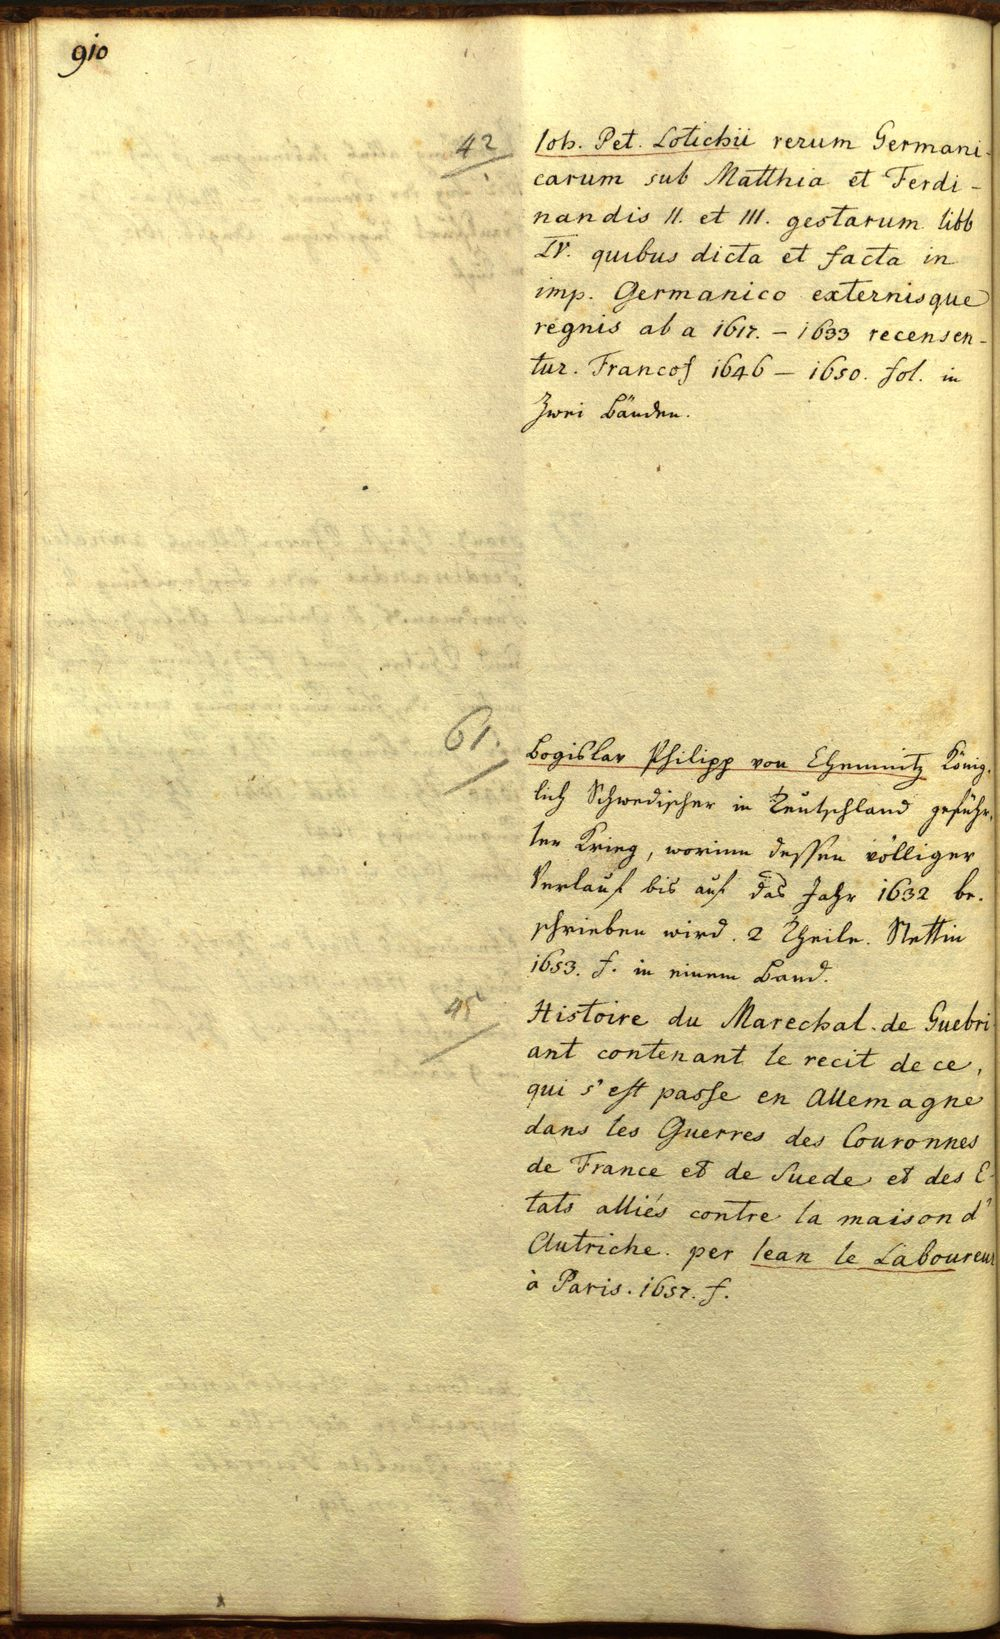 910
42
Ioh. Pet. Lotichii rerum Germani-
carum sub Matthia et Ferdi-
nandis II. et III. gestarum libb
IV. quibus dicta et facta in
imp. Germanico externisque
regnis ab a 1617. – 1633 recensen-
tur. Francof 1646 – 1650. fol. in
zwei Bänden.
61.
Bogislav Philipp von Chemnitz König-
lich Schwedischer in Teutschland geführ-
ter Krieg, worinn dessen völliger
Verlauf bis auf das Jahr 1632 be-
schrieben wird. 2 Theile. Stettin
1653. f. in einem Band.
45
Histoire du Marechal de Guebri
ant contenant le recit de ce,
qui s'est passe en Allemagne
dans les Guerres des Couronnes
de France et de Suede et des E-
tats alliés contre la maison d'
Autriche. per Iean le Laboureur
à Paris. 1657. f.